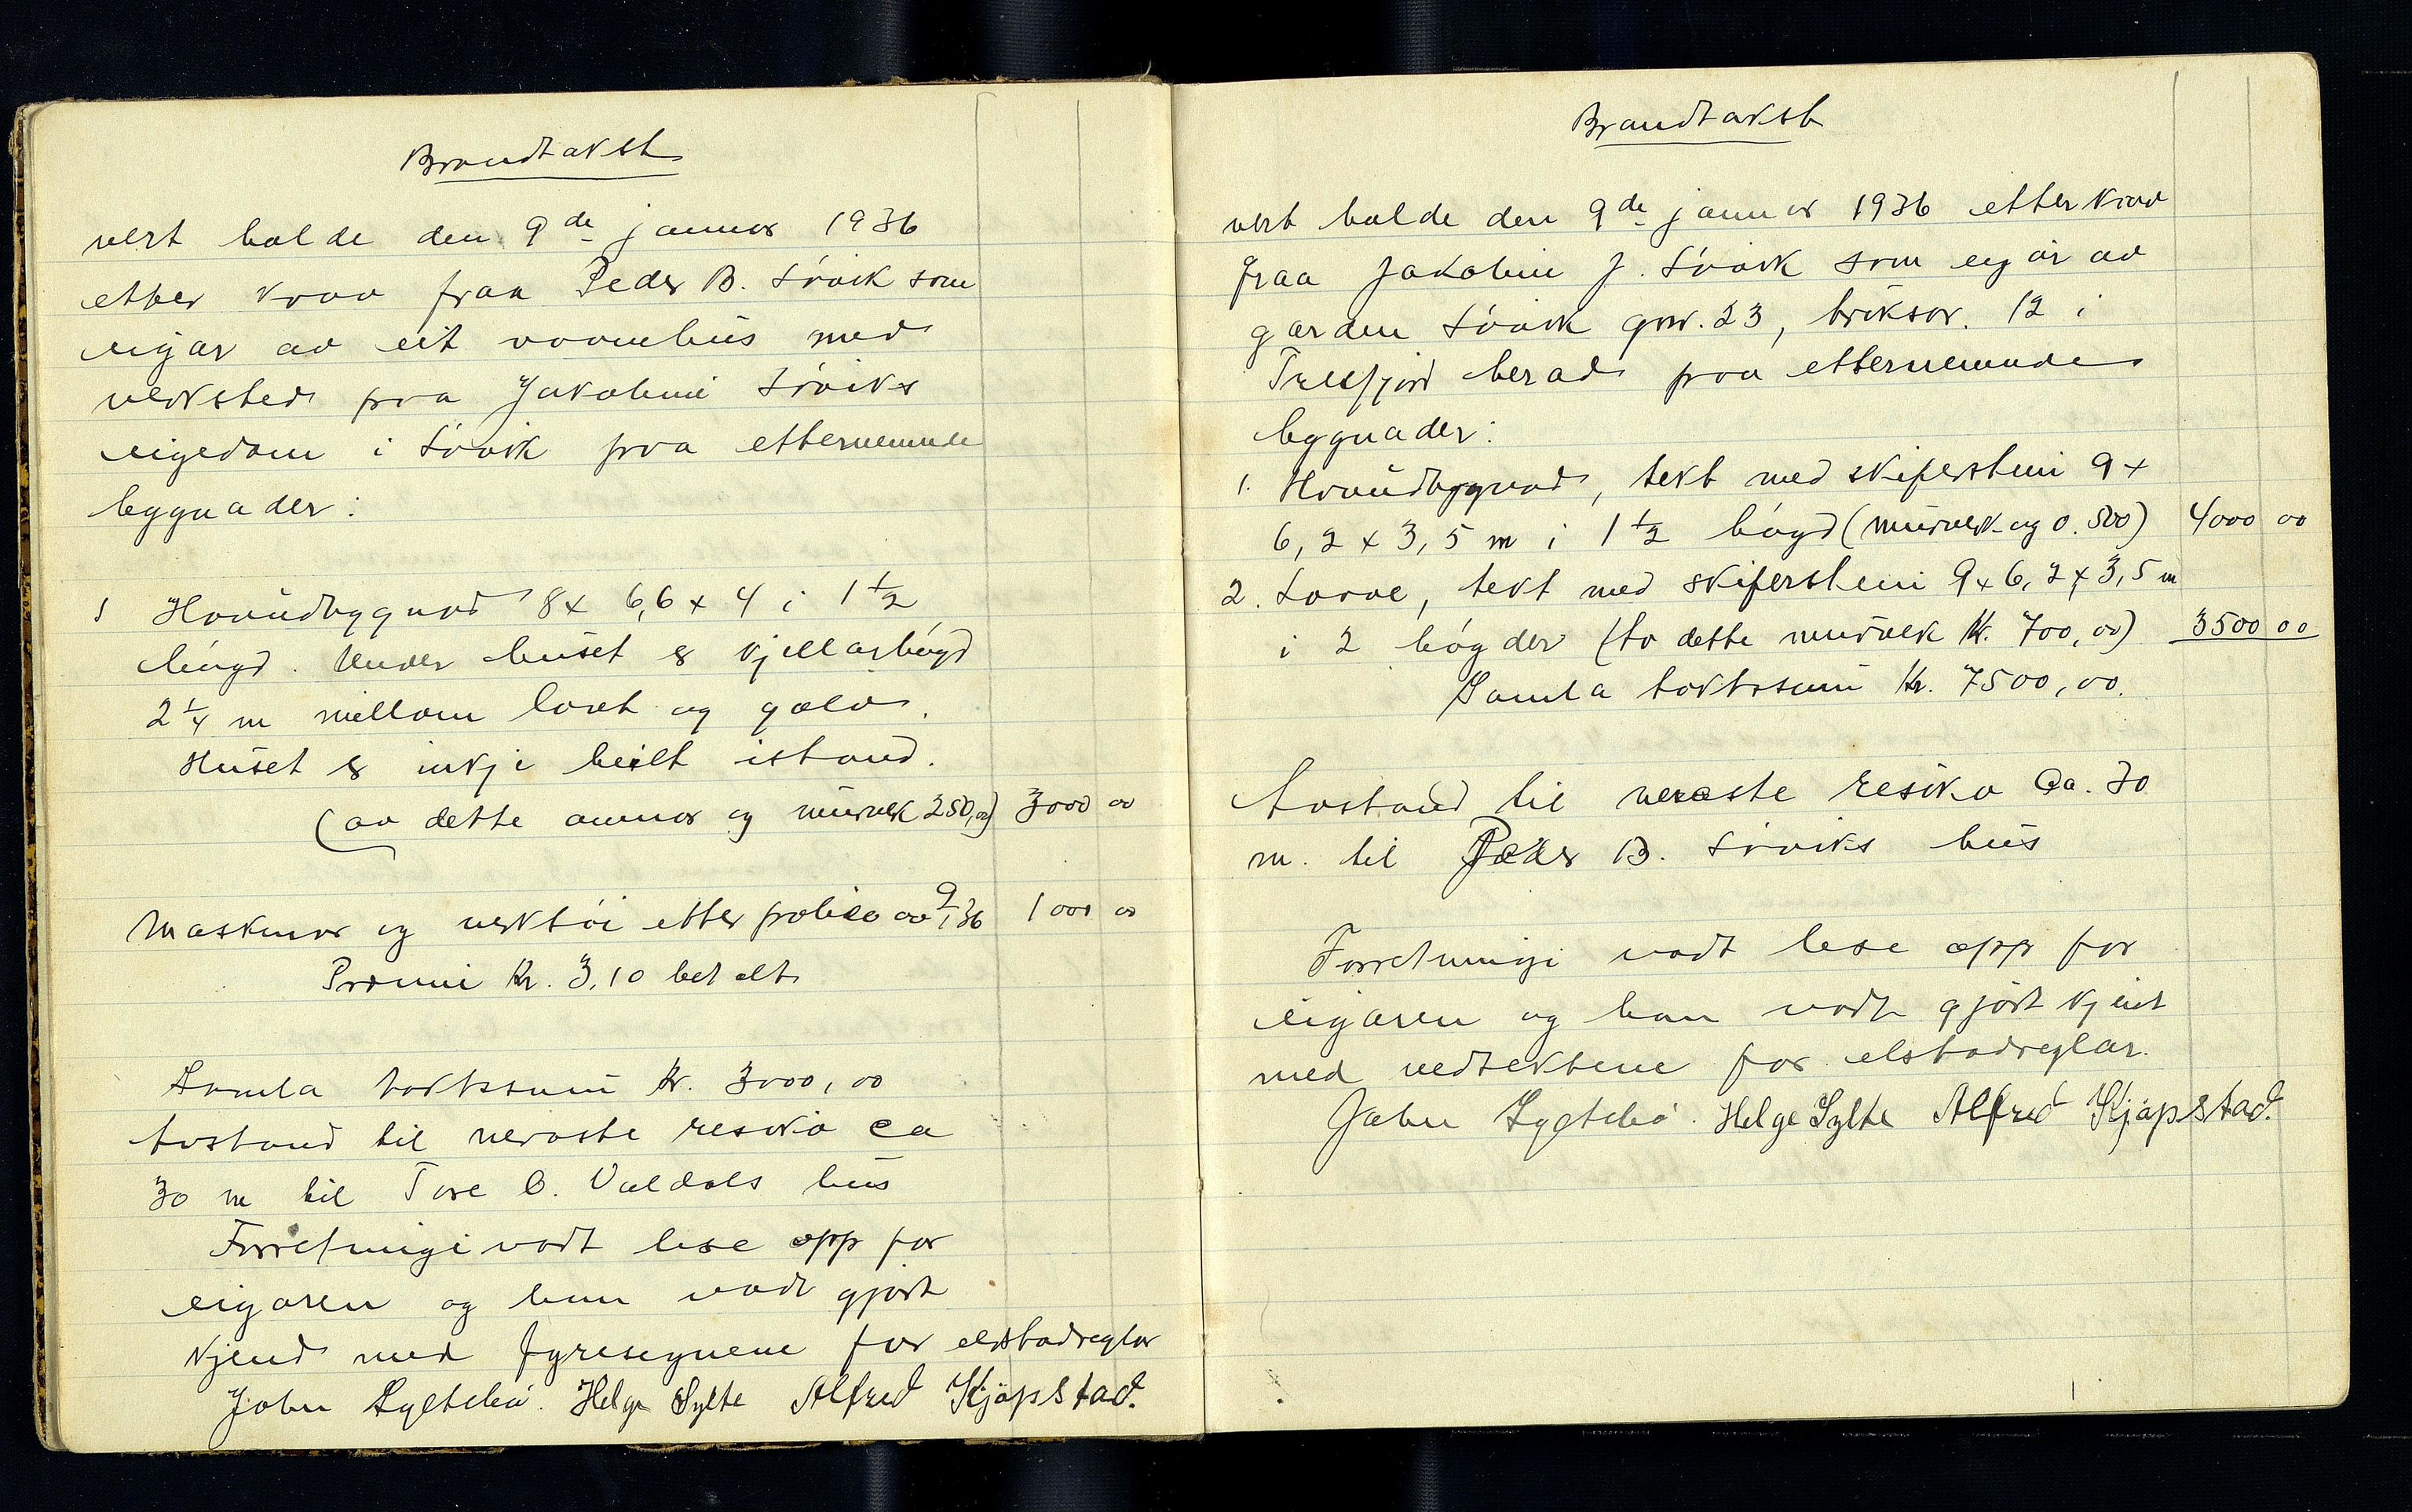 Brandtakst
vert halde den 9de januar 1936
etter krav fraa Peder B. Løvik som
eigar av eit vaanehus med
verksted paa Jakobine Løviks
eigedom i Løvik paa etternemnde
bygnader:
1 Hovudbygnad 8 x 6,6 x 4 i 1 1/2
høgd. Under huset er kjellarhøgd
2 1/4 m millom loret og golv.
Huset er inkje heilt istand.
(av dette annor og murverk 250,00) 3000 00
Maskinor og verktøi etter police av 9/1 36 1000 00
Præmie kr. 3,10 betalt
Samla takstsum kr. 3000,00
Avstand til næraste resiko ca
30 m til Tore O. Valdals hus
Forretningi vart lese opp for
eigaren og han vart gjort
kjend med fyresegnene for elstadreglar
John Sylthebø. Helge Sylte Alfred Kjøpstad.
Brandtakst
vert halde den 9de januar 1936 etter krav
fraa Jakobine J. Løvik som eigar av
garden Løvik gnr. 23, bruksnr. 12 i
Tresfjord herad paa etternemnde
bygnader:
1. Hovudbygnad, tekt med skiferstein 9 x
6,2 x 3,5 m i 1 1/2 høgd (murverk og o. 500) 4000 00
2. Løoe, tekt med skiferstein 9 x 6,2 x 3,5 m
i 2 høgder (av dette murverk Kr. 700,00) 3500 00
Samla takstsum Kr. 7500,00.
Avstand til næraste resiko ca. 30
m. til Peder B. Løviks hus
Forretningi vart lese opp for
eigaren og han vart gjort kjent
med vedtektene for elstadreglar.
John Sylthebø. Helge Sylte Alfred Kjøpstad.